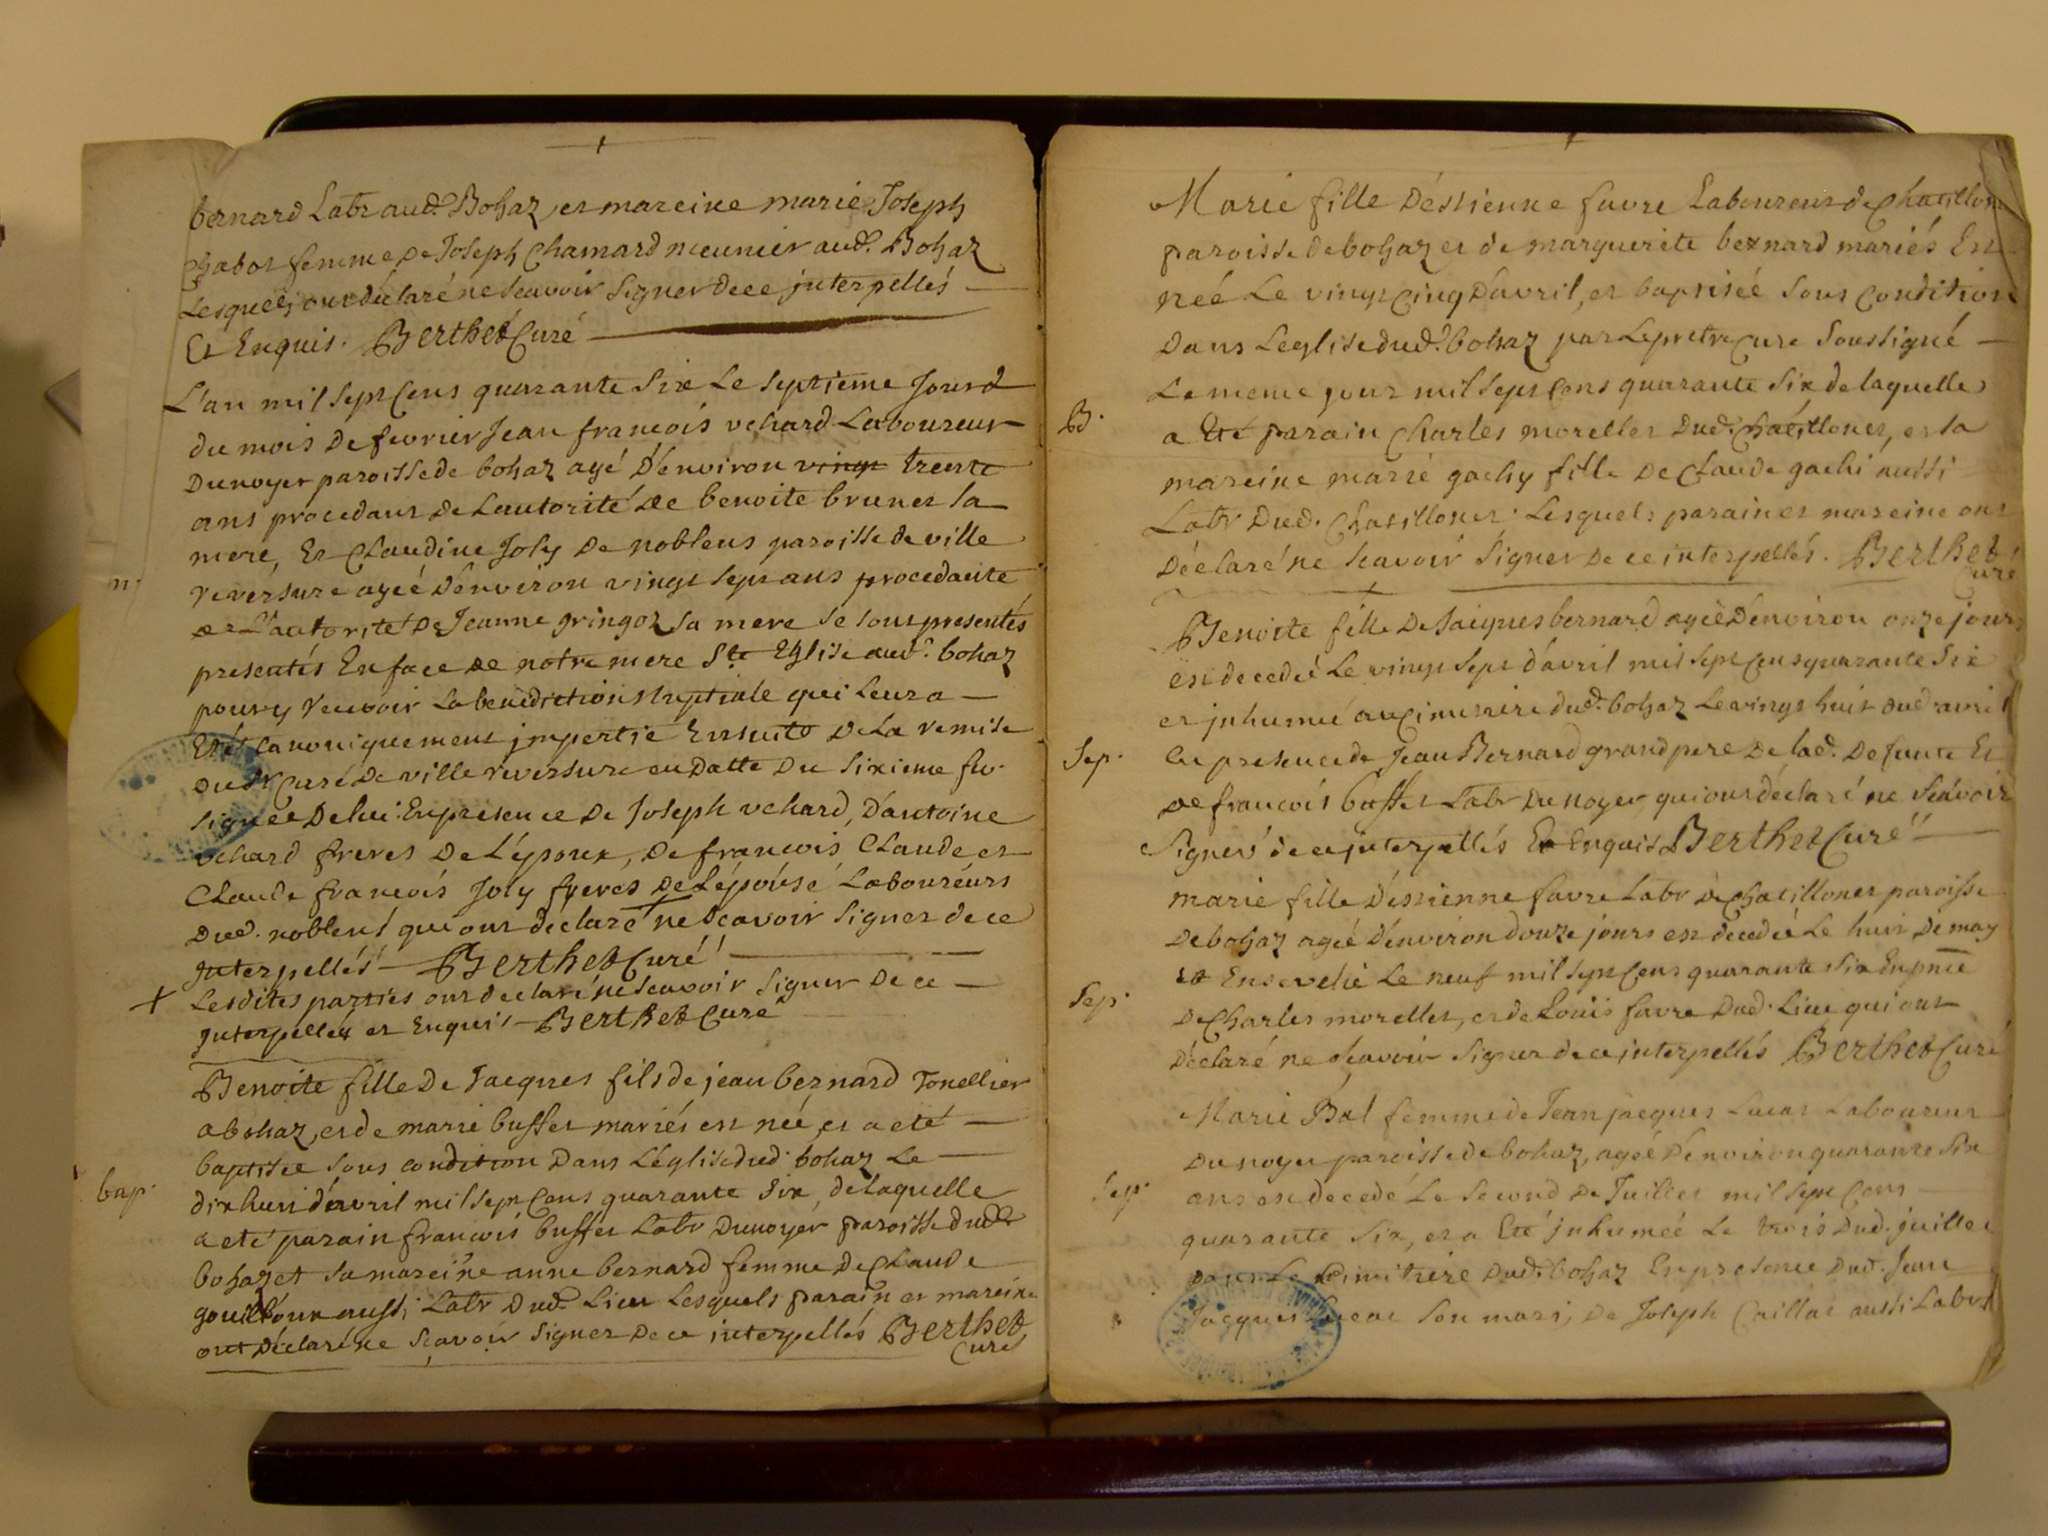 bernard Labr aud. Bohaz, et mareine marie Joseph
chabot femme de Joseph Chamard meunier aud. Bohaz
Lesquels ont déclaré ne scavoir signer de ce interpellés
Et Enquis. Berthet Curé
L'an mil sept cens quarante six Le septieme Jour
du mois de fevrier Jean francois vchard Laboureur
Du noyer paroisse de bohaz agé d'environ vingt trente
ans procedant de Lautorité de benoite brunet sa
mere, Et Claudine Joly de noblens paroisse de ville
reversure agéé d'environ vingt sept ans procedante
de L'autorité de Jeanne gringoz sa mere se sont presentés
presentés En face de notre mere Ste Eglise aud. bohaz
pour y recevoir La benediction Nuptiale qui Leur a
Eté canoniquement impertie Ensuite de La remise
du Sr Curé de ville reversure en datte du sixieme fev.
signée de lui. En presence de Joseph vchard, d'antoine
vchard freres de L'époux, de francois Claude et
Claude francois Joly freres de Lépouse Laboureurs
dud. noblens qui ont déclaré ne scavoir signer de ce
interpellés Berthet Curé
+ Lesdites parties ont declaré ne scavoir signer de ce
interpelléz et Enquis Berthet Curé
Benoite fille de Jacques fils de jean bernard Tonellier
a bohaz, et de marie buffet mariés est née, et a eté
bap.
baptisée sous condition dans L'églis dud. bohaz Le
dix huit d'avril mil sept cens quarante six, de laquelle
a eté parain francois buffet Labr du noyer paroisse dud.
bohaz et sa mareine anne bernard femme de Claude
aussi Labr dud. Lieu Lesquels parain et mareine
ont déclaré ne scavoir signer de ce interpellés Berthet
Curé
Marie fille d'estienne favre Laboureur de Chatillonet
paroisse de bohaz et de marguerite bernard mariés Est
néé Le vingt cinq d'avril, et baptisée sous condition
dans Leglise dud. bohaz par Le pretre Curé soussigné
Le meme jour mil sept cens quarante six de laquelle
B.
a Eté parain Charles morellet dud. Chatillonet, et la
mareine marie gachy fille de Claude gachi aussi
Labr dud. Chatillonet. Lesquels parain et mareine ont
déclaré ne scavoir signer de ce interpellés. Berthet
Curé
Benoite fille de Jaiques bernard agéé d'environ onze jours
est decedéé Le vingt sept d'avril mil sept cens quarante six
et inhuméé au cimitiere dud. bohaz Le vingt huit dud. avril
Sep.
En presence de Jean Bernard grand pere de lad. defunte Et
de francois buffet Labr du noyer qui ont déclaré ne scavoir
signer de ce interpellés Et Enquis Berthet Curé
marie fille d'estienne favre Labr de Chatillonet paroisse
de bohaz agéé d'environ douze jours est decedéé Le huit de may
et Ensevelie Le neuf mil sept cens quarante six En pnce
Sep.
de Charles morellet, et de Louis favre dud. Lieu qui ont
déclaré ne scavoir signer de ce interpellés Berthet Curé
Marie Bal femme de Jean jacques Lucas Laboureur
du noyer paroisse de bohaz, agéé d'environ quarante six
Sep.
ans est decedé Le second de Juillet mil sept cens
quarante six, et a Eté inhuméé Le trois dud. juillet
dans Le cimitiere dud. bohaz En presence dud. Jean
Jacques Lucas son mari, de Joseph aussi Labr